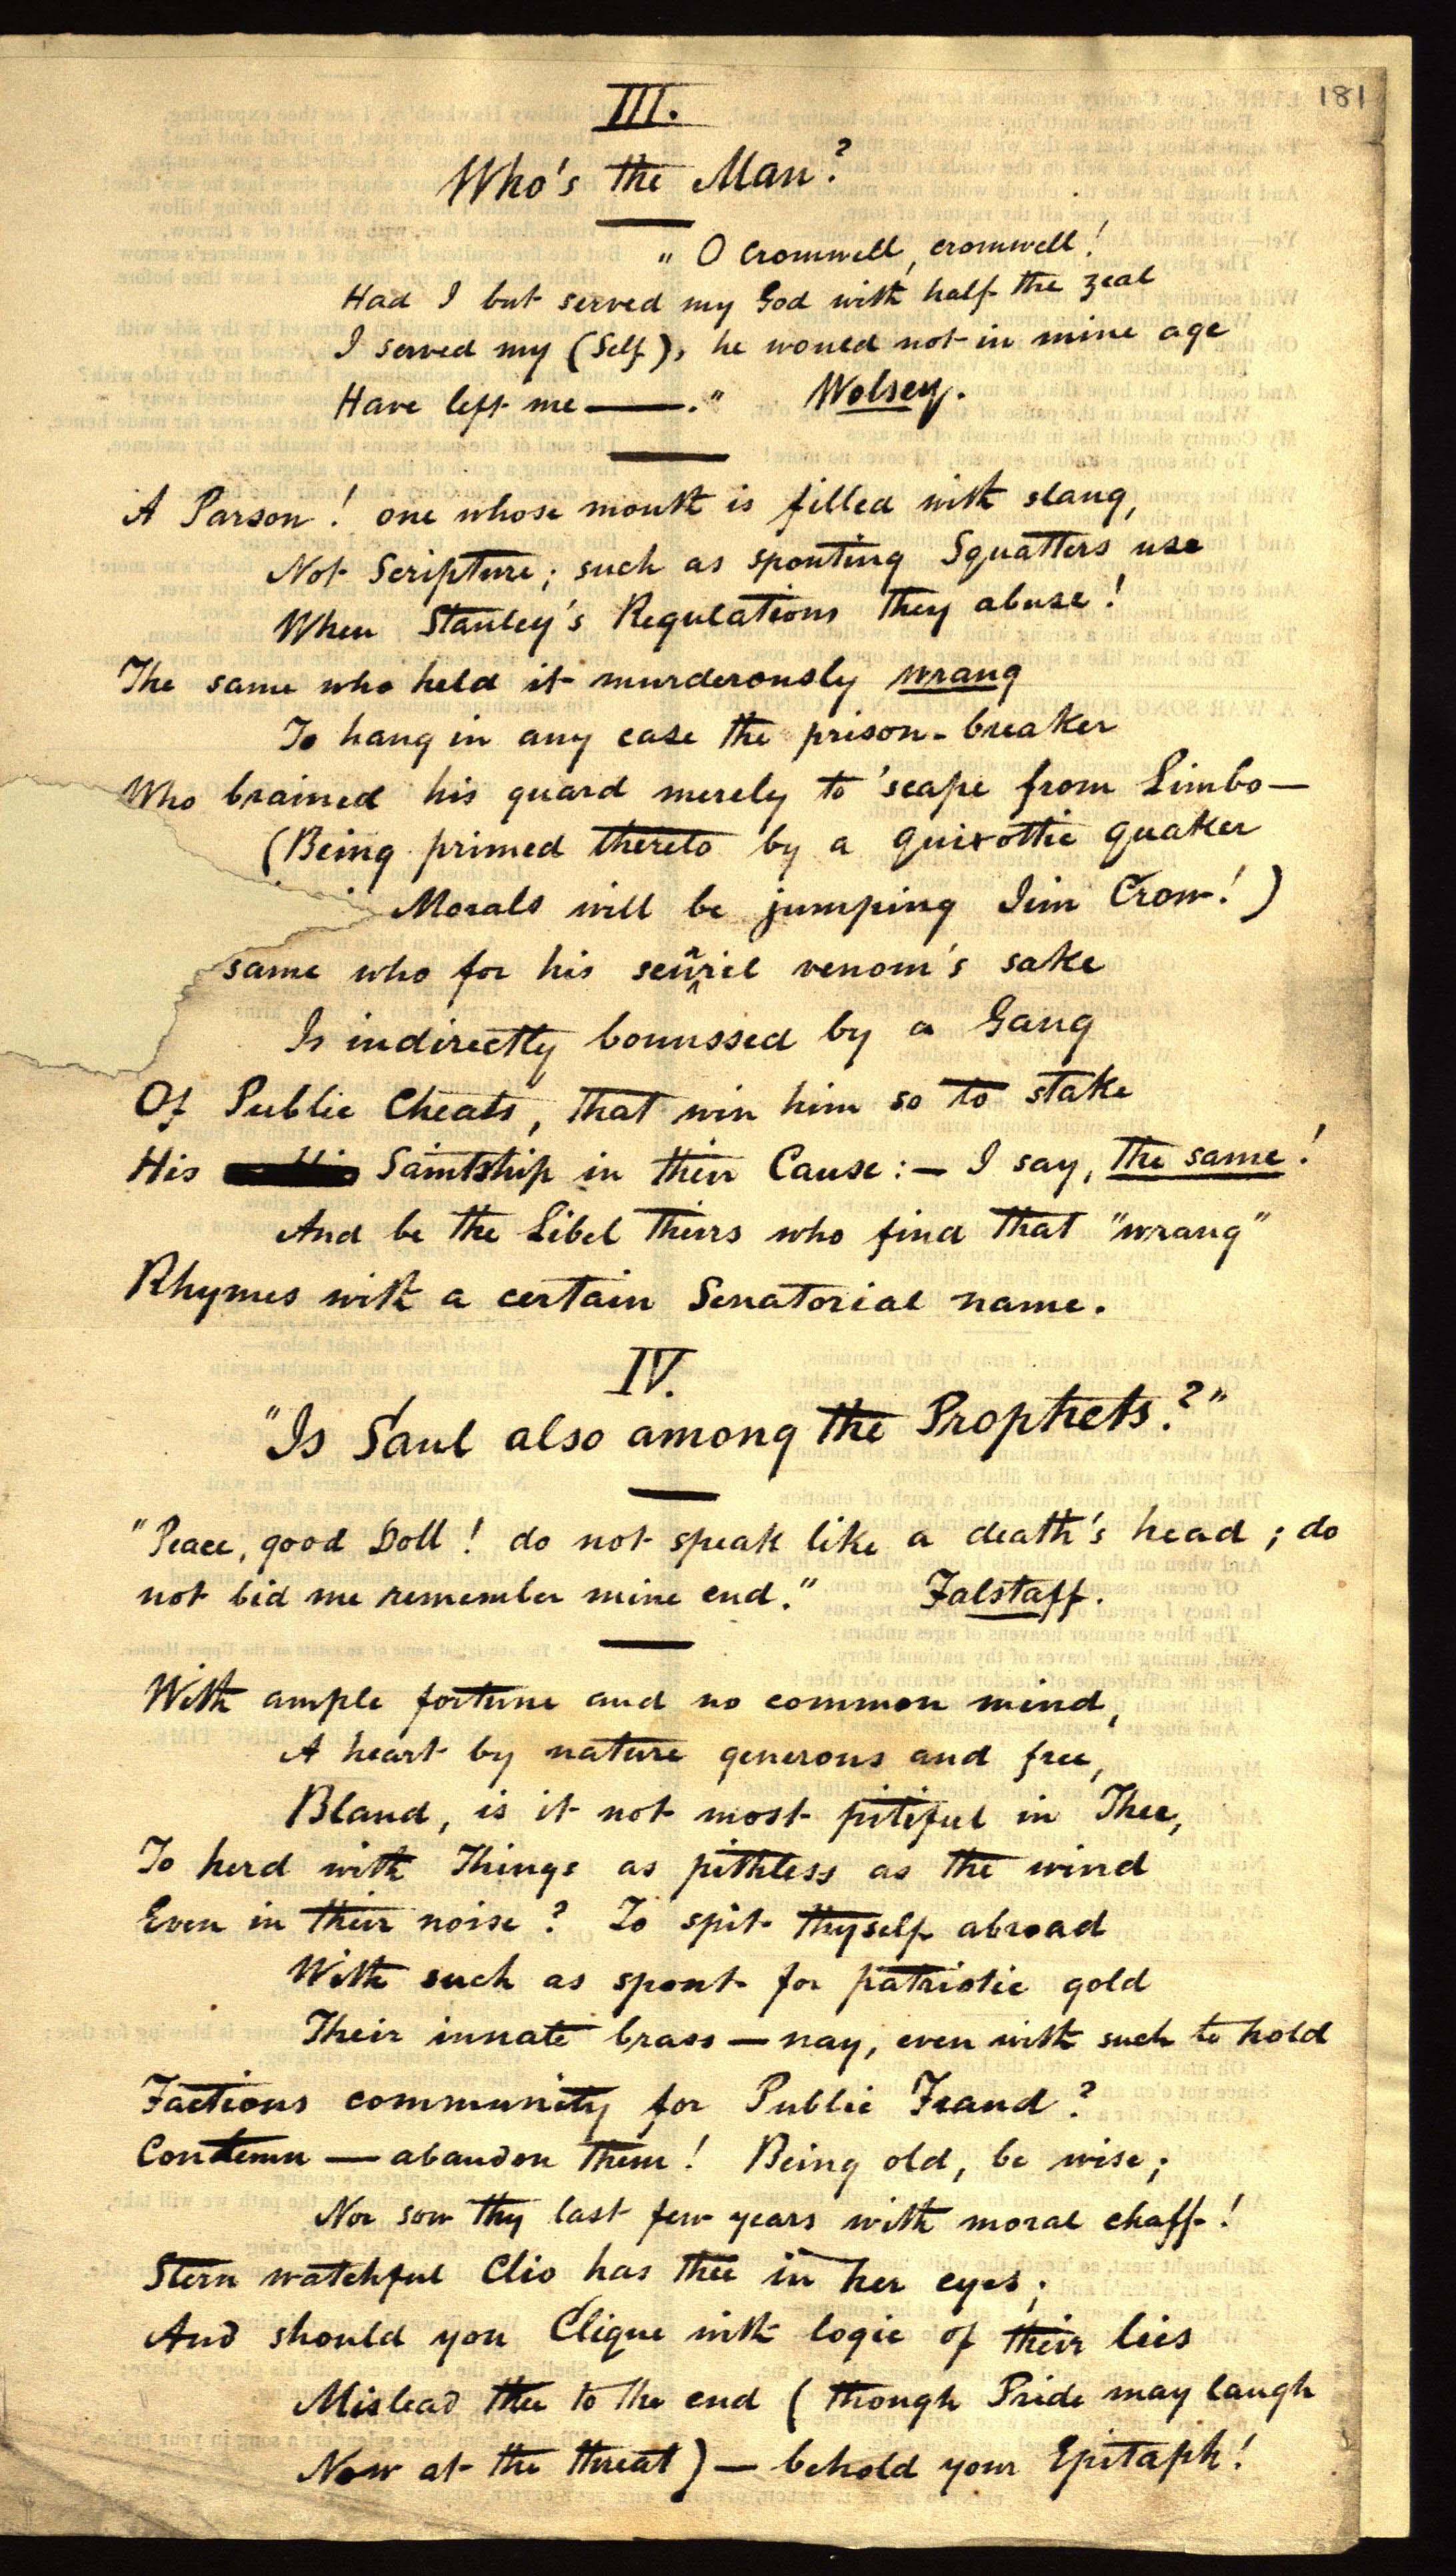 181
III.
Who's the Man?
" O Cromwell, cromwell!
Had I but served my God with half the zeal
I served my (Self), he would not in mine age
Have left me ——." Wolsey.
A Parson! one whose mouth is filled with slang,
Not Scripture; such as spouting Squatters use
When Stanley's Regulations they abuse!
The same who held it murderously wrang
To hang in any case the prison-breaker
Who brained his guard merely to 'scape from Limbo—
(Being primed thereto by a quixottic quaker
Morals will be jumping Jim Crow!)
same who for his sc
venom's sake
Is indirectly bonussed by a Gang
Of Public Cheats, that win him so to stake
His Saintship in their Cause:— I say, the same!
And be the Libel theirs who find that "wrang"
Rhymes with a certain Senatorial name.
IV.
"Is Saul also among the Prophets?"
"Peace, good Doll! do not speak like a death's head; do
not bid me remember mine end." Falstaff.
With ample fortune and no common mind,
A heart by nature generous and free,
Bland, is it not most pitiful in Thee,
To herd with Things as pithless as the wind
Even in their noise? To spit thyself abroad
With such as spout for patriotic gold
Their innate brass — nay, even with such to hold
Factious community for Public Fraud?
Contemn — abandon them! Being old, be wise;
Nor sow thy last few years with moral chaff!
Stern watchful Clio has thee in her eyes;
And should yon Clique with logic of their lies
Mislead thee to the end (though Pride may laugh
Now at the threat) — behold your Epitaph!